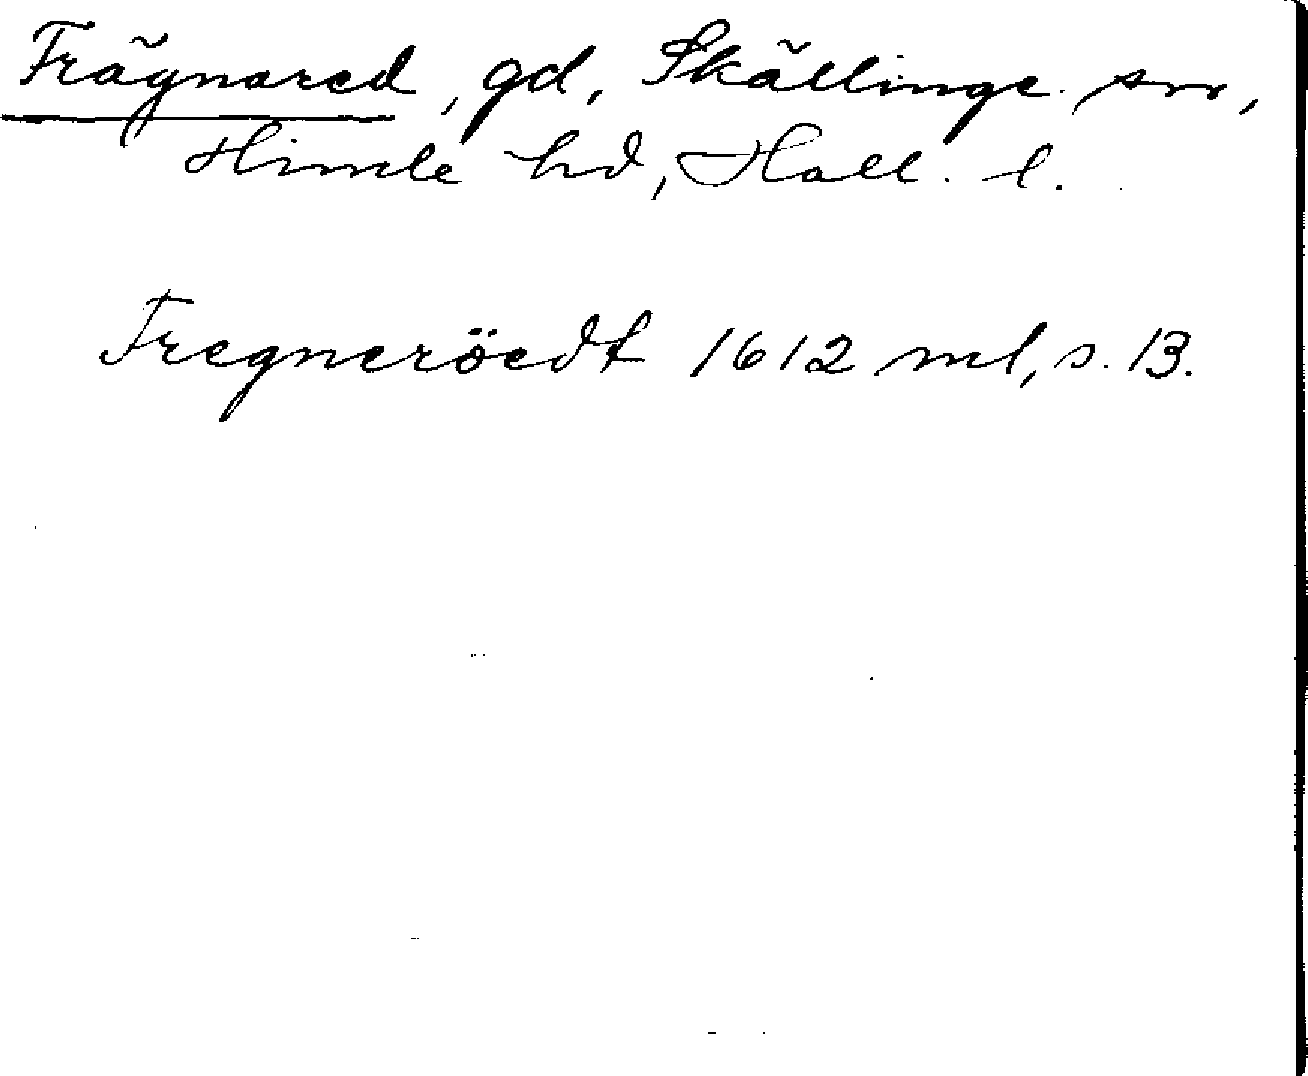 Frägnared, gd, Skällinge sn,
Himle hd, Hall. l.
Fregneröedt 1612 ml, s. 13.